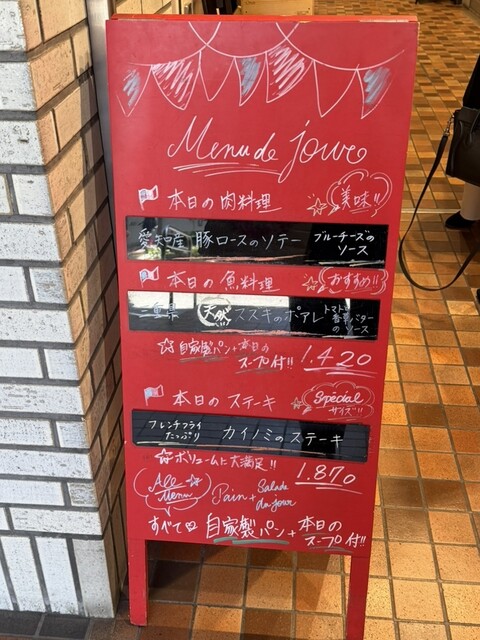 Menu de jour
本日の肉料理 美味!!
愛知産 豚ロースのソテー ブルーチーズの
ソース
本日の魚料理 おすすめ!!
三重県 天然 スズキのポアレ トマト香草バター
のソース
☆自家製パン+本日の
スープ付!! 1.420
本日のステーキ Special
サイズ!!
フレンチフライ
たっぷり カイノミのステーキ
☆ボリュームに大満足!! 1.870
All
Menu Pain + Salade
du jour
すべて 自家製パン+本日の
スープ付!!